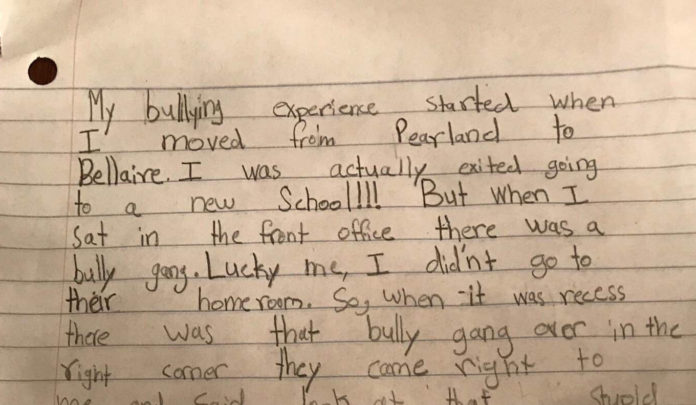 My bullying experience started when
I moved from Pearland to
Bellaire. I was actually exited going
to a new School!!!! But when I
Sat in the front office there was a
bully gang. Lucky me, I did'nt go to
their homeroom. So, when it was recess
there was that bully gang over in the
right corner they came right to
me and Said look at that stupid